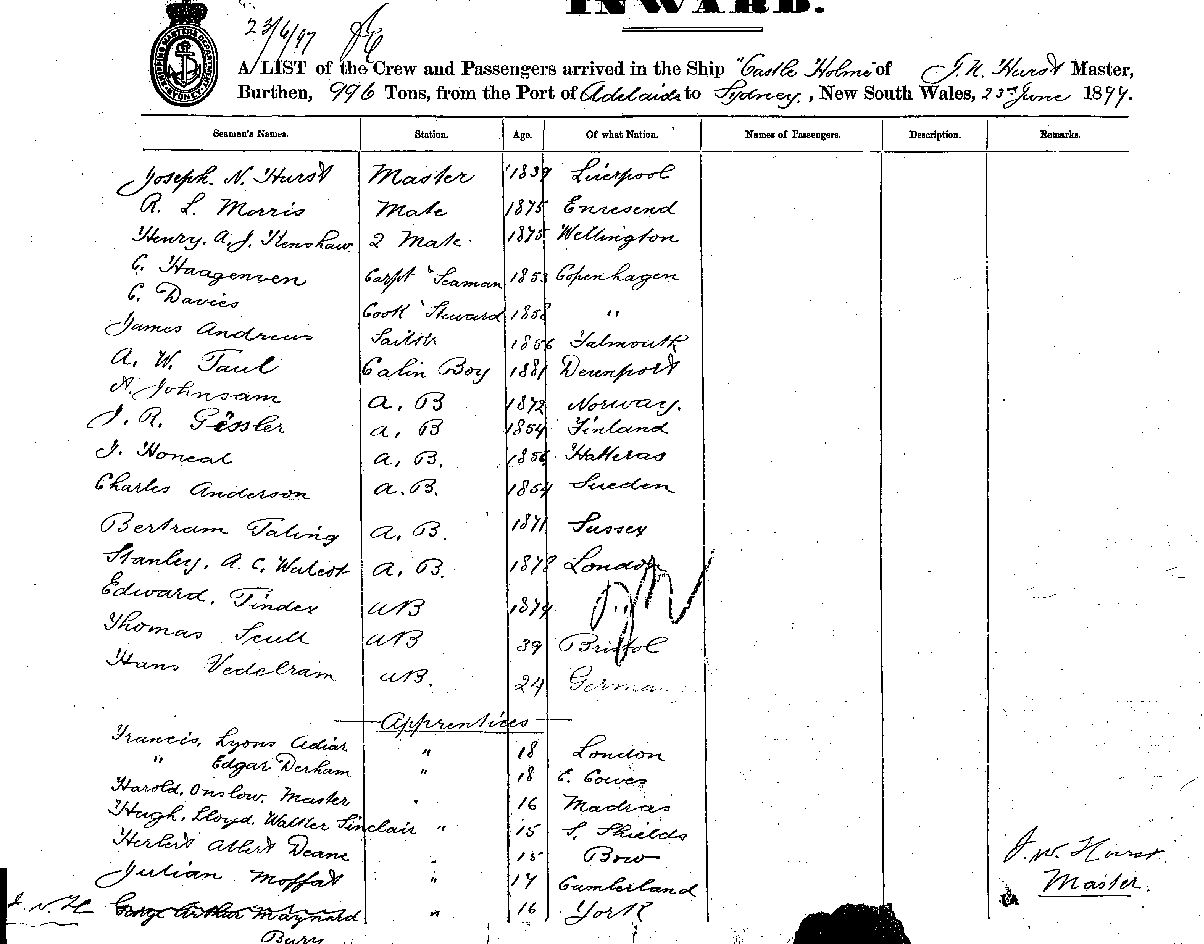 INWARD.
23/6/97
A LIST of the Crew and Passengers arrived in the Ship "Castle Holme" of J. N. Hurst Master,
Burthen, 996 Tons, from the Port of Adelaide to Sydney, New South Wales, 23rd June 1897.
Seamen's Names. Station. Age. Of what Nation. Names of Passengers. Description. Remarks.
Joseph. N. Hurst Master 1839 Liverpool
R. L. Morris Mate 1875
Henry. A. J. Henshaw 2 Mate 1875 Wellington
C. Haagenven Carpt " Seaman 1853 Copenhagen
C. Davies Cook " Steward 1858 "
James Andrews Sailor 1856 Falmouth
A. W. Taul Cabin Boy 1881 Devenport
A. Johnsam A. B 1872 Norway.
J. R. Gessler A. B 1854 Finland
J. Honeal A. B. 1856 Hatteras
Charles Anderson A. B. 1854 Sweden
Bertram Taling A. B. 1871 Sussex
Stanley. A. C. Walcot A. B. 1878 London
Edward. Tindex AB 1879
Thomas Scull AB 39 Bristol
Hans Vedelram AB. 24 German
Apprentices
Francis. Lyons Adiar " 18 London
" Edgar Derham " 18 E. Cowes
Harold. Onslow. Master " 16 Madras
Hugh. Lloyd. Walther Sinclair " 15 S. Shields
Herbert Albert Deane " 15 Bow
Julian Moffat " 17 Cumberland
J. N. H George Arthur Maynard " 16 York
Bury
J. W. Hurst
Master.